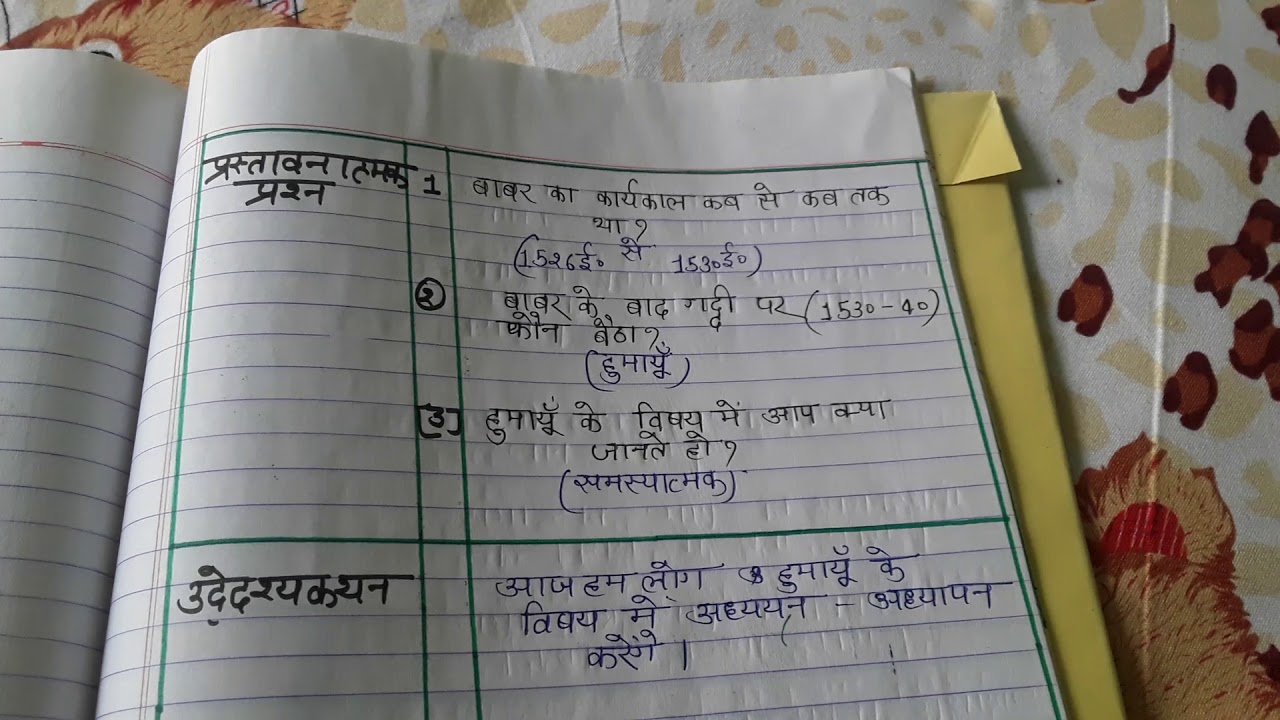 प्रस्तावनात्मक
प्रश्न
1 बाबर का कार्यकाल कब से कब तक
था?
(1526ई० से 1530ई०)
2 बाबर के बाद गद्दी पर (1530-40)
कौन बैठा?
(हुमायूँ)
[3] हुमायूँ के विषय में आप क्या
जानते हो?
(समस्यात्मक)
उद्देश्यकथन
आज हम लोग हुमायूँ के
विषय में अध्ययन - अध्यापन
करेंगे।